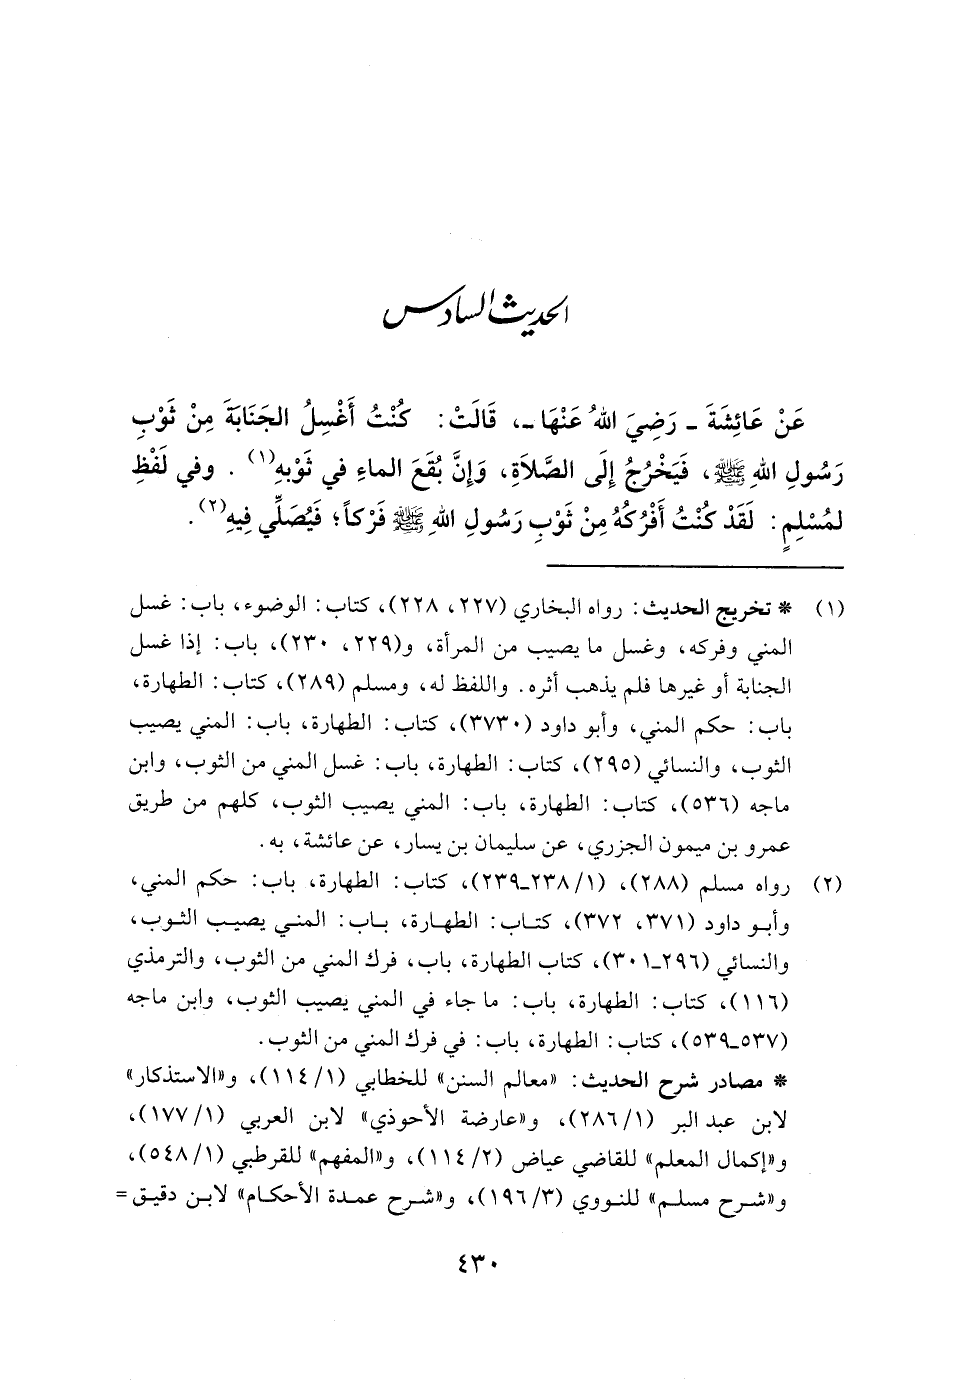 الحديث السادس
عَنْ عَائِشَةَ - رَضِيَ اللهُ عَنْهَا -، قَالَتْ: كُنْتُ أَغْسِلُ الجَنَابَةَ مِنْ ثَوْبِ
رَسُولِ اللهِ ﷺ، فَيَخْرُجُ إِلَى الصَّلَاةِ، وَإِنَّ بُقَعَ الماءِ في ثَوْبِهِ(١) . وفي لَفْظِ
لمُسْلِمٍ: لَقَدْ كُنْتُ أَفْرُكُهُ مِنْ ثَوْبِ رَسُولِ اللهِ ﷺ فَرْكاً؛ فَيُصَلِّي فِيهِ(٢).
(١) * تخريج الحديث: رواه البخاري (٢٢٧، ٢٢٨)، كتاب: الوضوء، باب: غسل
المني وفركه، وغسل ما يصيب من المرأة، و(٢٢٩، ٢٣٠)، باب: إذا غسل
الجنابة أو غيرها فلم يذهب أثره. واللفظ له، ومسلم (٢٨٩)، كتاب: الطهارة،
باب: حكم المني، وأبو داود (٣٧٣٠)، كتاب: الطهارة، باب: المني يصيب
الثوب، والنسائي (٢٩٥)، كتاب: الطهارة، باب: غسل المني من الثوب، وابن
ماجه (٥٣٦)، كتاب: الطهارة، باب: المني يصيب الثوب، كلهم من طريق
عمرو بن ميمون الجزري، عن سليمان بن يسار، عن عائشة، به.
(٢) رواه مسلم (٢٨٨)، (١/ ٢٣٨-٢٣٩)، كتاب: الطهارة، باب: حكم المني،
وأبو داود (٣٧١، ٣٧٢)، كتاب: الطهارة، باب: المني يصيب الثوب،
والنسائي (٢٩٦-٣٠١)، كتاب الطهارة، باب، فرك المني من الثوب، والترمذي
(١١٦)، كتاب: الطهارة، باب: ما جاء في المني يصيب الثوب، وابن ماجه
(٥٣٧-٥٣٩)، كتاب: الطهارة، باب: في فرك المني من الثوب.
* مصادر شرح الحديث: «معالم السنن» للخطابي (١/ ١١٤)، و«الاستذكار»
لابن عبد البر (١/ ٢٨٦)، و«عارضة الأحوذي» لابن العربي (١/ ١٧٧)،
و«إكمال المعلم» للقاضي عياض (٢/ ١١٤)، و«المفهم» للقرطبي (١/ ٥٤٨)،
و«شرح مسلم» للنووي (٣/ ١٩٦)، و«شرح عمدة الأحكام» لابن دقيق =
٤٣٠